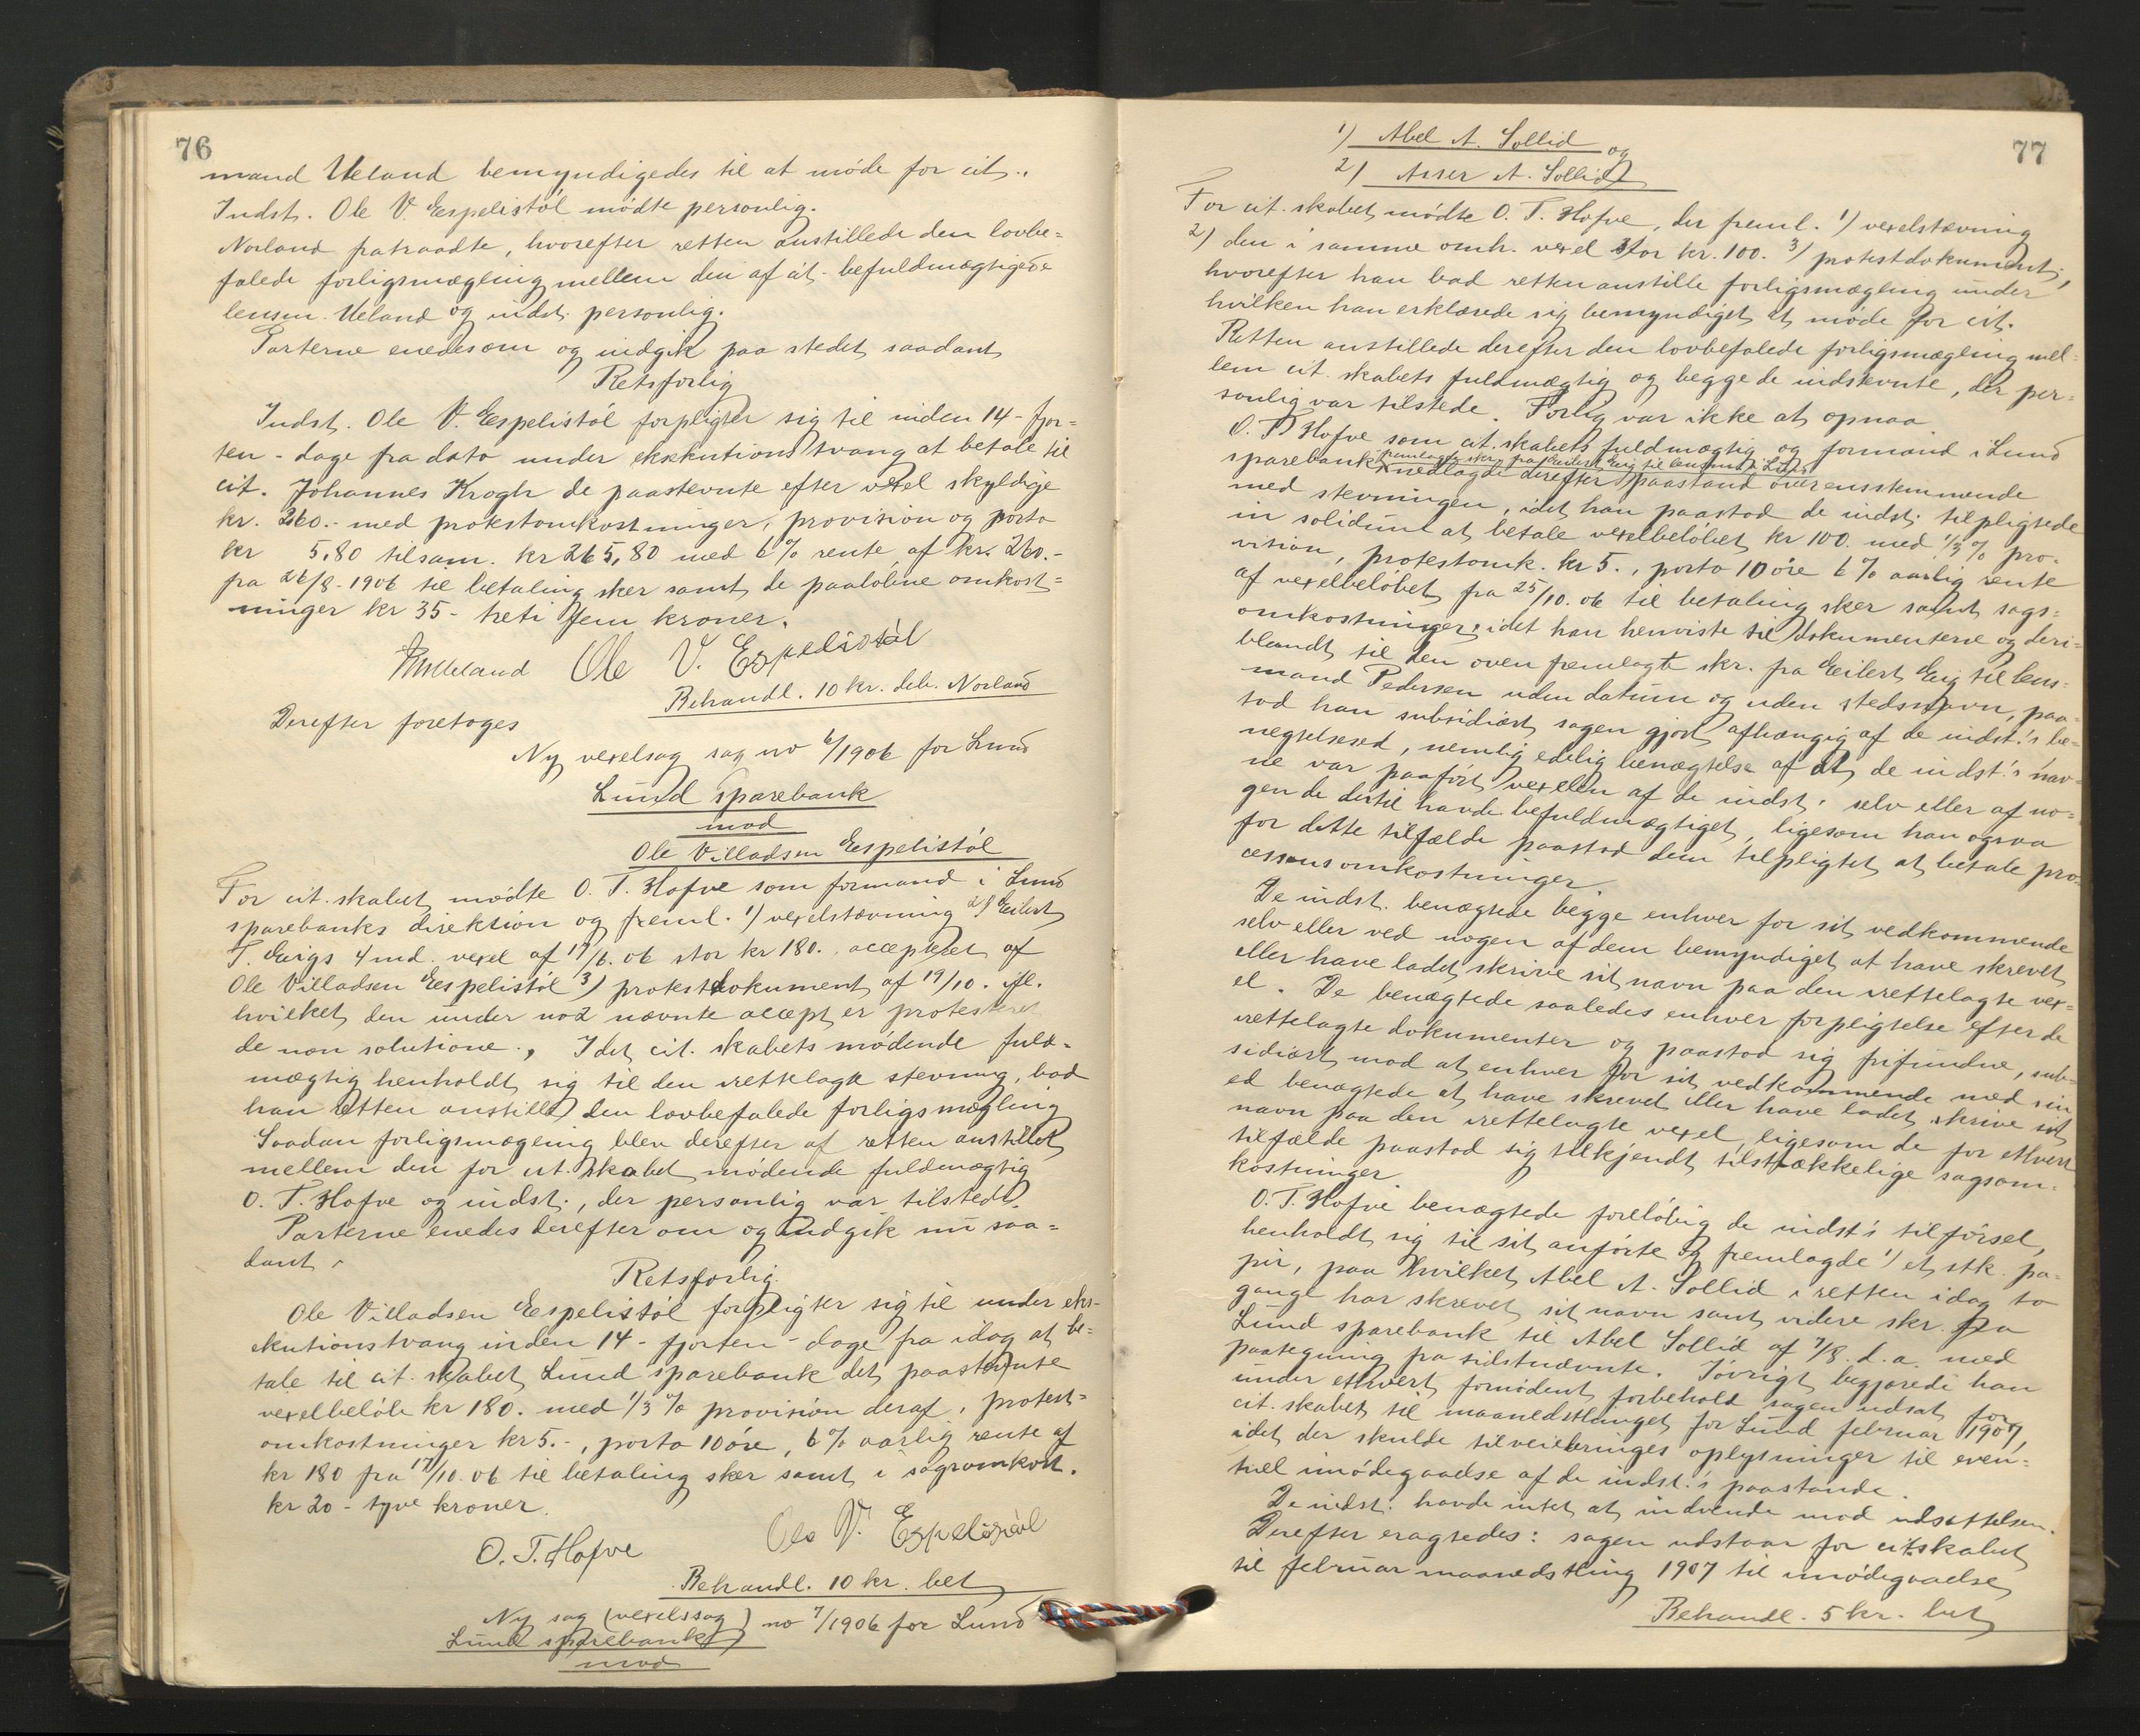 76
mand Ueland bemyndigedes til at møde for cit..
Indst. Ole V. Eespelistøl mødte personlig.
Norland fratraadte, hvorefter retten anstillede den lovbe=
falede forligsmægling mellem den af cit. befuldmægtigede
lensm. Ueland og indst. personlig.
Parterne enedes om og indgik paa stedet saadant
Retsforlig
Indst. Ole V. Eespelistøl forpligter sig til inden 14 - fjor=
ten - dage fra dato under eksekutions tvang at betale til
cit. Johannes Krogh de paastevnte efter vexel skyldige
kr. 260.- med protestomkostninger, provision og porto
kr 5,80 tilsam. kr 265,80 med 6% rente af kr. 260.-
fra 26/8 - 1906 til betaling sker samt de paaløbne omkost=
ninger kr 35 - treti fem kroner.
Ueland Ole V. Espelistøl
Behandl. 10 kr. deb. Norland
Derefter foretoges
Ny vexelsag sag no 6/1906 for Lund
Lund sparebank
mod
Ole Villadsen Eespelistøl
For cit. skabet mødte O. T. Hofve som formand i Lund
sparebanks direktion og freml. 1) vexelstævning 2) Eilert
T. Eeigs 4 md. vexel af 17/6. 06 stor kr 180., accepteret af
Ole Villadsen Eespelistøl 3) protestdokument af 19/10. ifl.
hvilket den under no 2 nævnte accept er protesteret
de non solutione., Idet cit. skabets mødende fuld=
mægtig henholdt sig til den irettelagte stevning, bad
han retten anstille den lovbefalede forligsmægling
Saadan forligsmægling blev derefter af retten anstillet
mellem den for cit. skabet mødende fuldmægtig
O. T. Hofve og indst., der personlig var tilstede.
Parterne enedes derefter om og indgik nu saa=
dant
Retsforlig.
Ole Villadsen Eespelistøl forpligter sig til under eks-
ekutionstvang inden 14 - fjorten - dage fra idag at be=
tale til cit. skabet Lund sparebank det paastevnte
vexelbeløb kr 180. med 1/3 % provision deraf, protest=
omkostninger kr 5.-, porto 10 øre, 6% aarlig rente af
kr 180 fra 17/10. 06 til betaling sker samt i sagsomkost.
kr 20 - tyve kroner.
O. T. Hofve Ole V. Espelistøl
Behandl. 10 kr. bet
Ny sag (vexelssag) no 7/1906 for Lund
Lund sparebank
mod
77
1) Abel A. Sollid og
2) Asser A. Sollid
For cit. skabet mødte O. T. Hofve, der freml. 1) vexelstævning
2) den i samme omh. vexel stor kr. 100. 3) protestdokument,
hvorefter han bad retten anstille forligsmægling under
hvilken han erklærede sig bemyndiget at møde for cit.
Retten anstillede derefter den lovbefalede forligsmægling mel=
lem cit. skabets fuldmægtig og begge de indstevnte, der per=
sonlig var tilstede. Forlig var ikke at opnaa.
O. T. Hofve som cit. skabets fuldmægtig og formand i Lund
fremlagde skr. fra Eilert Eeig til lensmand i Lund
sparebank × nedlagde derefter paastand overensstemmende
med stevningen, idet han paastod de indst. tilpligtede
in solidum at betale vexelbeløbet kr 100. med 1/3 % pro=
vision, protestomk. kr 5., porto 10 øre 6% aarlig rente
af vexelbeløbet fra 25/10. 06 til betaling sker samt sags=
omkostninger, idet han henviste til dokumenterne og deri=
blandt til den oven fremlagte skr. fra Eilert Eeig til lens=
mand Pedersen uden datum og uden stedsnavn, paa=
stod han subsidiært sagen gjort afhængig af de indst.'s be=
negtelsesed, nemlig edelig benægtelse af at de indst.'s nav=
ne var paaført vexelen af de indst. selv eller af no=
gen de dertil havde befuldmægtiget, ligesom han ogsaa
for dette tilfælde paastod dem tilpligtet at betale pro=
cessensomkostninger.
De indst. benægtede begge enhver for sit vedkommende
selv eller ved nogen af dem bemyndiget at have skrevet
eller have ladet skrive sit navn paa den irettelagte vex=
el. De benægtede saaledes enhver forpligtelse efter de
irettelagte dokumenter og paastod sig frifundne, sub=
sidiært mod at enhver for sit vedkommende med sin
ed benægtede at have skrevet eller have ladet skrive sit
navn paa den irettelagte vexel, ligesom de for ethvert
tilfælde paastod sig tilkjendt tilstrækkelige sagsom=
kostninger.
O. T. Hofve benægtede foreløbig de indst's tilførsel,
henholdt sig til sit anførte og fremlagde 1) et stk. pa=
pir, paa hvilket Abel A. Sollid i retten idag to
gange har skrevet sit navn samt videre skr. fra
Lund sparebank til Abel Sollid af 7/8. d. a. med
paategning fra sidstnævnte. Iøvrigt begjærede han
under ethvert fornødent forbehold sagen udsat for
cit. skabet til maanedsthinget for Lund februar 1907,
idet der skulde tilveiebringes oplysninger til even=
tuel imødegaaelse af de indst.'s paastande.
De indst. havde intet at indvende mod udsættelsen.
Derefter eragtedes: sagen udstaar for citskabet
til februar maanedsting 1907 til imødegaaelse,
Behandl. 5 kr. bet